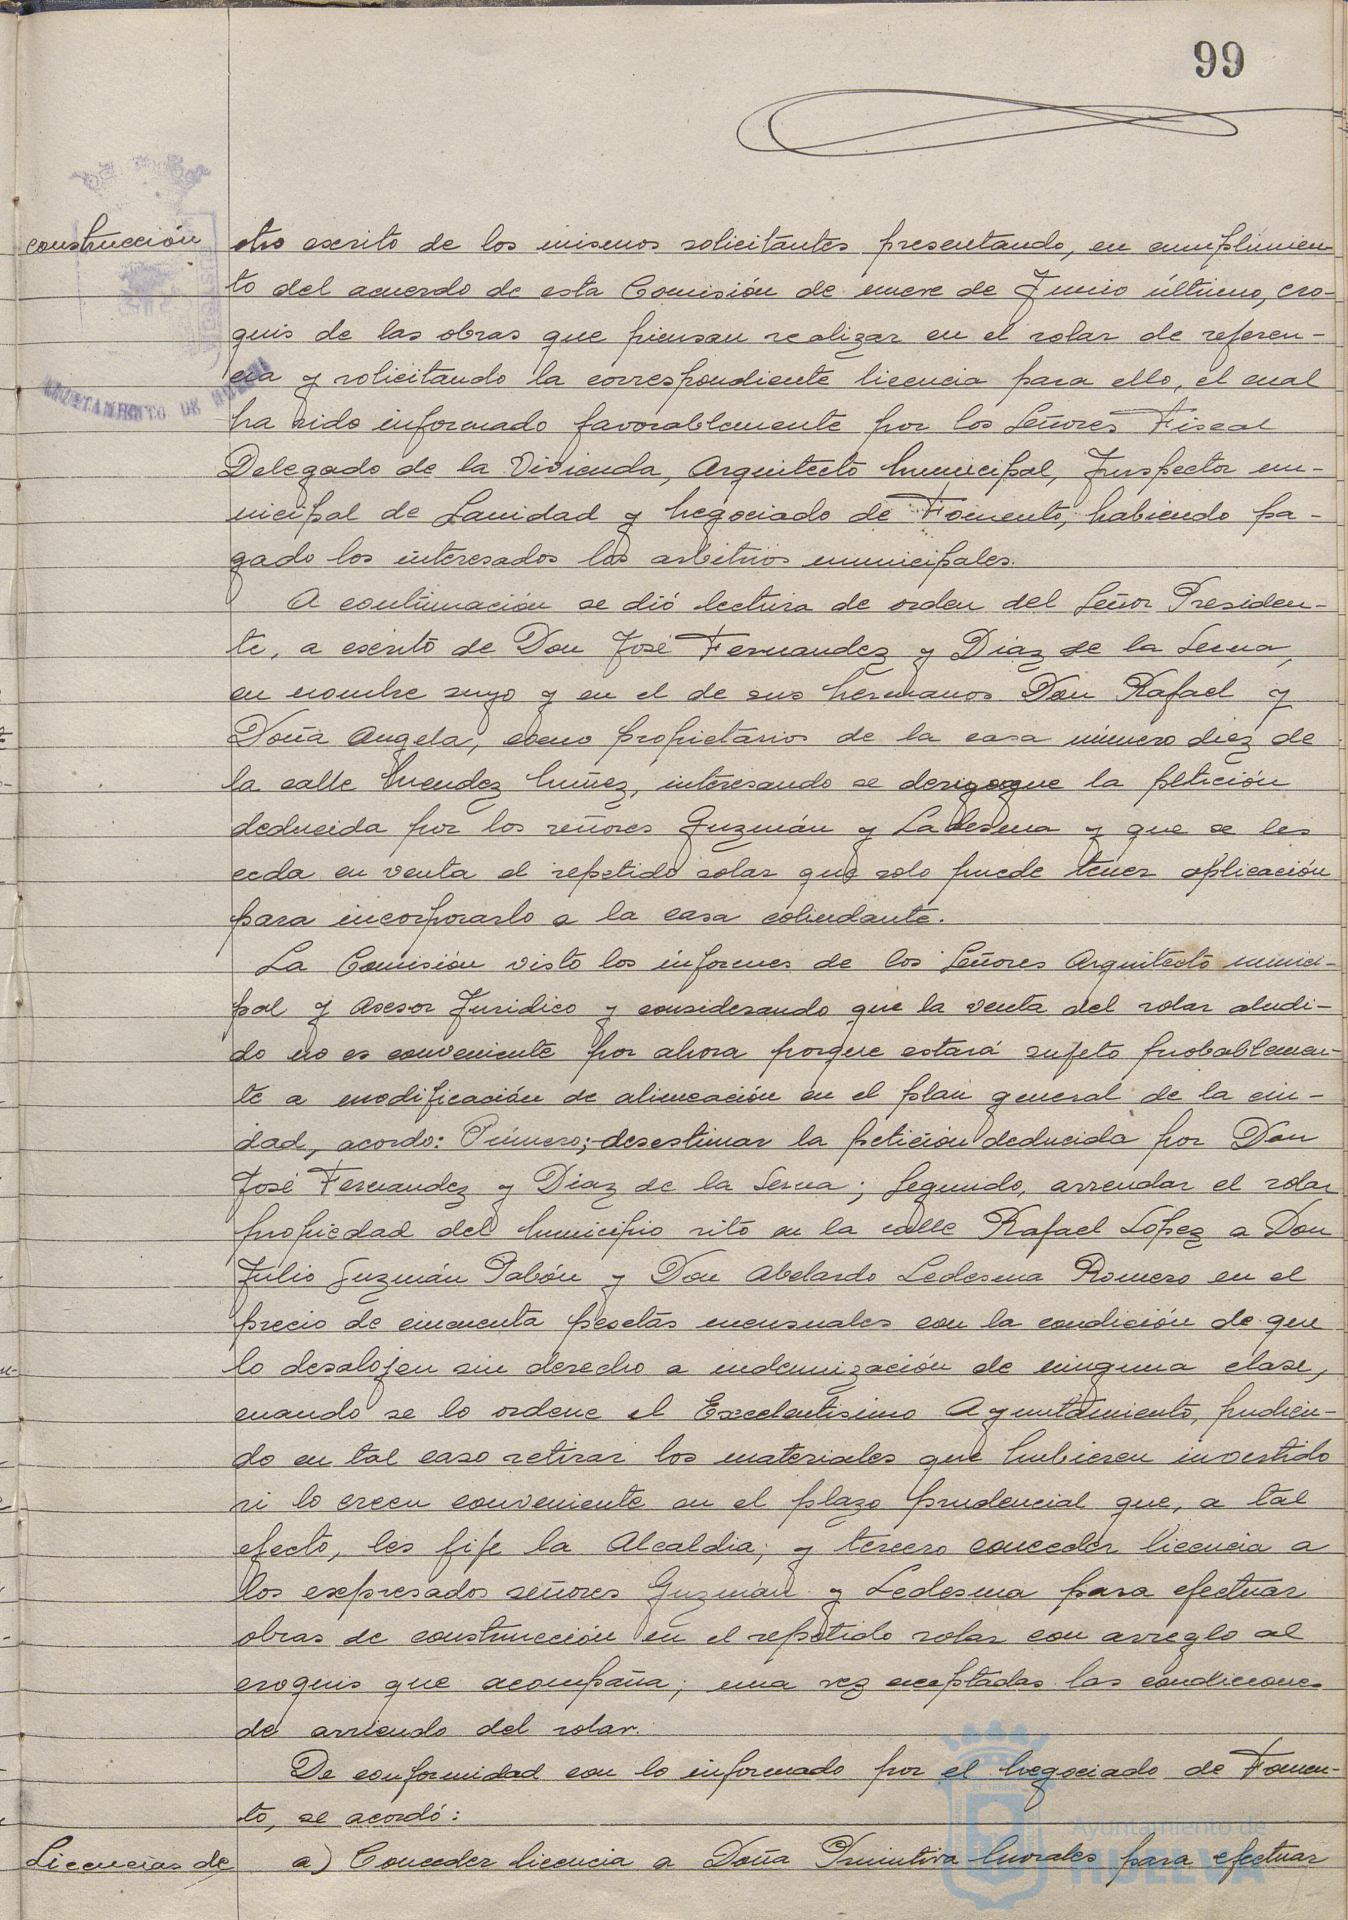 99
construcción otro escrito de los mismos solicitantes presentando, en cumplimien-
to del acuerdo de esta Comisión de nueve de Junio último, cro-
quis de las obras que piensan realizar en el solar de referen-
cia y solicitando la correspondiente licencia para ello, el cual
AYUNTAMIENTO DE HUELVA
ha sido informado favorablemente por los Señores Fiscal
Delegado de la Vivienda, Arquitecto Municipal, Inspector mu-
nicipal de Sanidad y Negociado de Fomento, habiendo pa-
gado los interesados los arbitrios municipales.
A continuación se dió lectura de orden del Señor Presiden-
te, a escrito de Don José Fernandez y Diaz de la Serna,
en nombre suyo y en el de sus hermanos Don Rafael y
Doña Angela, como propietarios de la casa número diez de
la calle Mendez Nuñez, interesando se la petición
deducida por los señores Guzmán y Ladesma y que se les
ceda en venta el repetido solar que solo puede tener aplicación
para incorporarlo a la casa colindante.
La Comisión visto los informes de los Señores Arquitecto munici-
pal y Asesor Juridico y considerando que la venta del solar aludi-
do no es conveniente por ahora porque estará sujeto probablemen-
te a modificación de alineación en el plan general de la ciu-
dad, acordo: Primero; desestimar la petición deducida por Don
José Fernandez y Diaz de la Serna; Segundo, arrendar el solar
propiedad del Municipio sito en la calle Rafael López a Don
Julio Guzmán Pabón y Don Abelardo Ledesma Romero en el
precio de cincuenta pesetas mensuales con la condición de que
lo desalojen sin derecho a indemnización de ninguna clase,
cuando se lo ordene el Excelentisimo Ayuntamiento, pudien-
do en tal caso retirar los materiales que hubiesen invertido
si lo creen conveniente en el plazo prudencial que, a tal
efecto, les fije la Alcaldia; y tercero conceder licencia a
los expresados señores Guzmán y Ledesma para efectuar
obras de construcción en el repetido solar con arreglo al
croquis que acompaña; una vez aceptadas las condiciones
de arriendo del solar.
De conformidad con lo informado por el Negociado de Fomen-
to, se acordó:
Licencias de a) Conceder licencia a Doña Primitiva Morales para efectuar
Ayuntamiento de
HUELVA